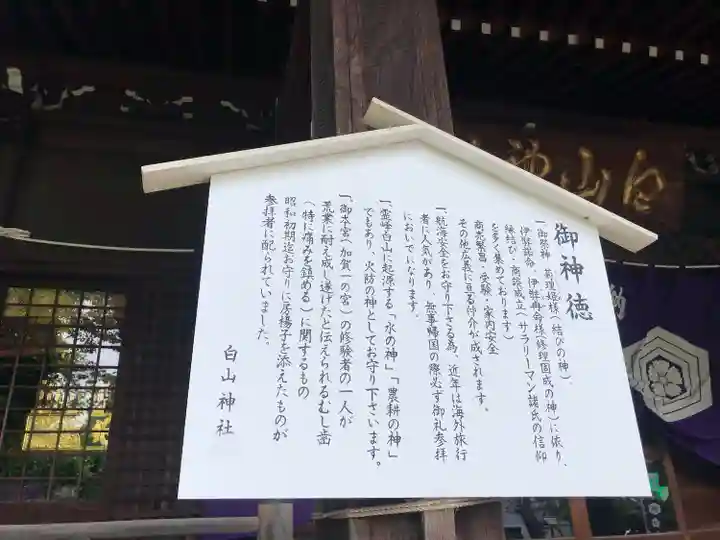 御神徳
一、御祭神 菊理姫様(結びの神)
伊弉諾命、伊弉冉命様(修理固成の神)に依り、
縁結び・商談成立(サラリーマン諸氏の信仰
を多く集めております)
商売繁昌・受験・家内安全
その他広義に亘る仲介が成されます。
一、航海安全をお守り下さる為、近年は海外旅行
者に人気があり、無事帰国の際必ず御礼参拝
においでになります。
一、霊峰白山に起源する「水の神」「農耕の神」
でもあり、火防の神としてお守り下さいます。
一、御本宮(加賀一の宮)の修験者の一人が
荒業に耐え成し遂げたと伝えられるむし歯
(特に痛みを鎮める)に関するもの
昭和初期迄お守りに房楊子を添えたものが
参拝者に配られていました。
白山神社
白山神